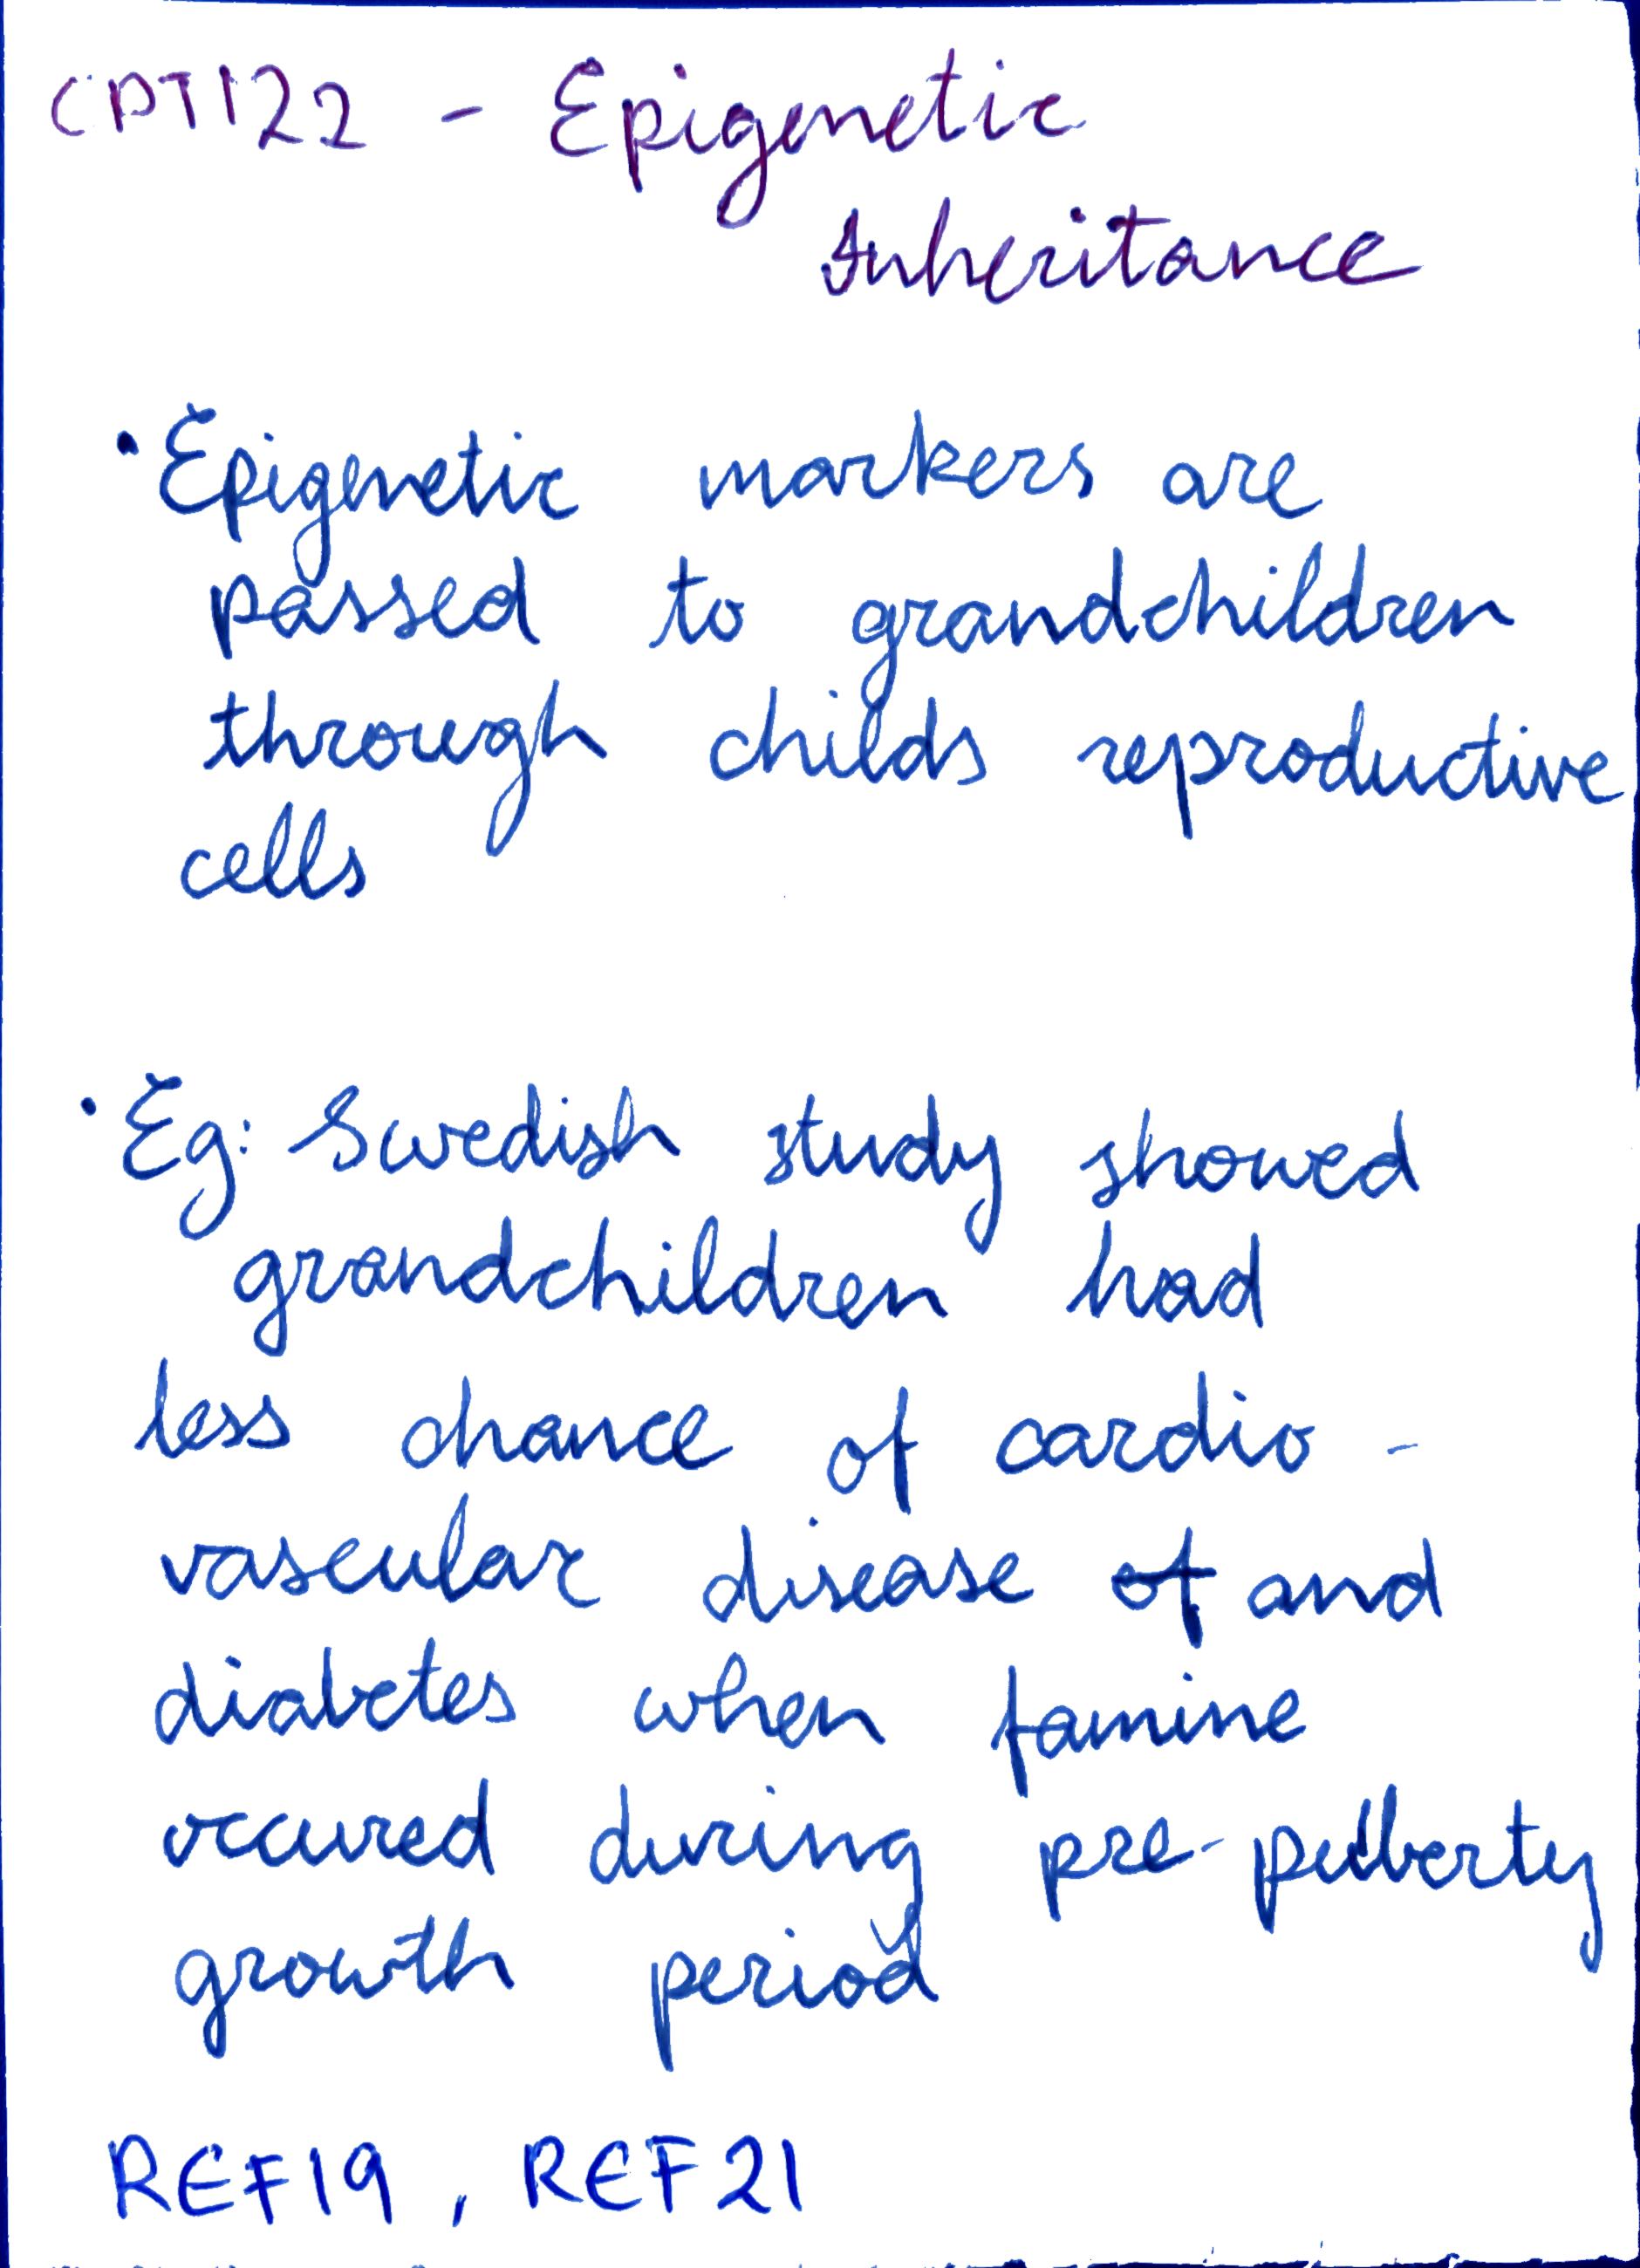 CPT122 - Epigenetic
Inheritance
• Epigenetic markers are
passed to grandchildren
through childs reproductive
cells
• Eg: Swedish study showed
grandchildren had
less chance of cardio -
vascular disease of and
diabetes when famine
occured during pre-puberty
growth period
REF19, REF21